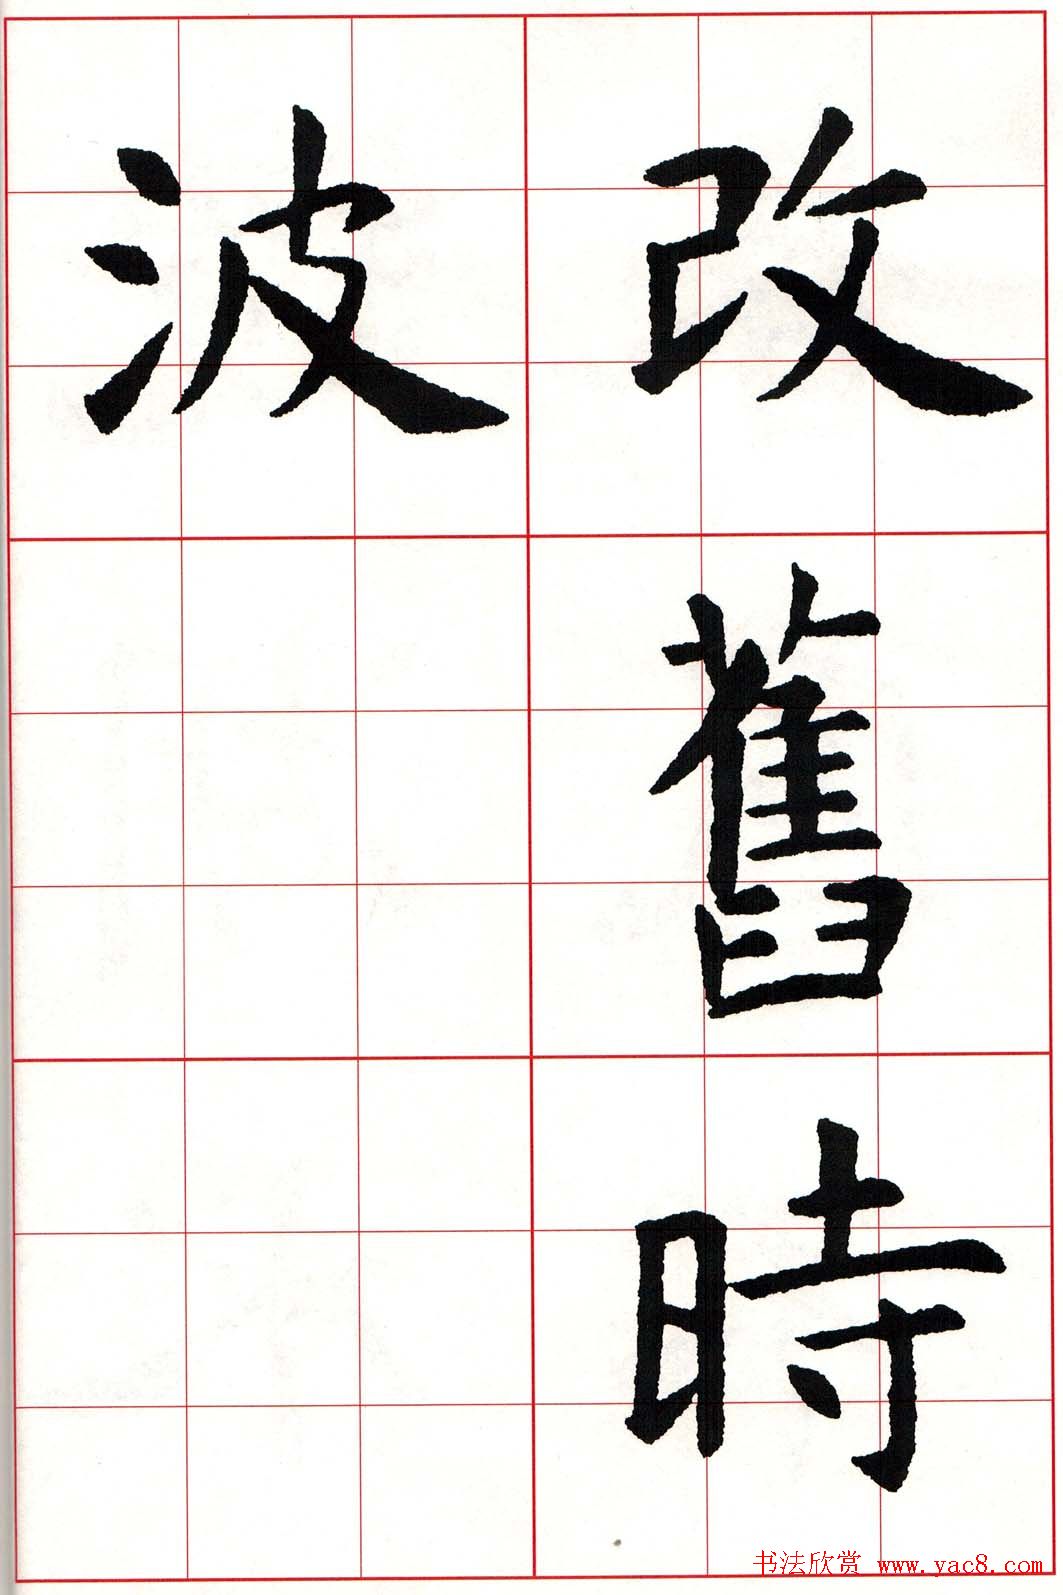 改舊時
波
书法欣赏 www.yac8.com